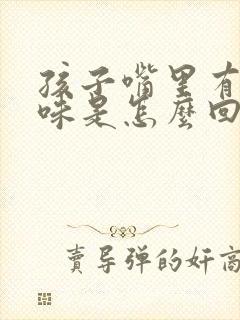 孩子嘴里有
味是怎麼回
賣导弹的奸商